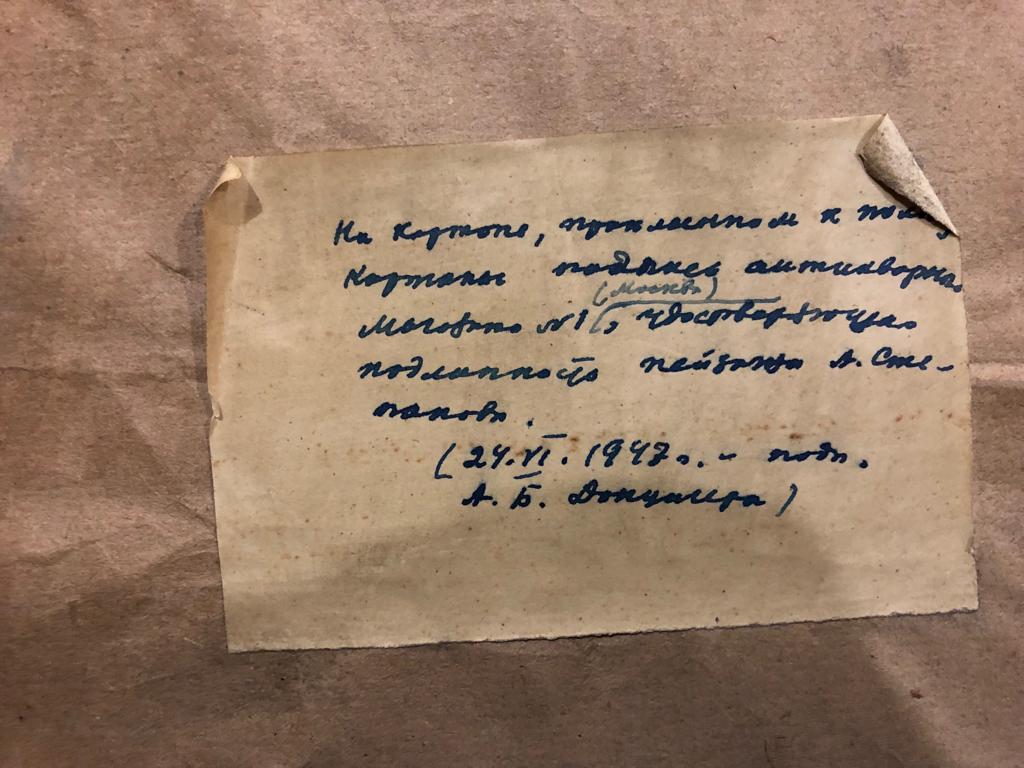 На картоне, приклеенном к
картины подпись антикварного
(Москва)
магазина №1, удостверяющая
подлинность пейзажа А. Сте-
панова.
(24.VI.1947г. - подп.
А. Б. Донцигера)